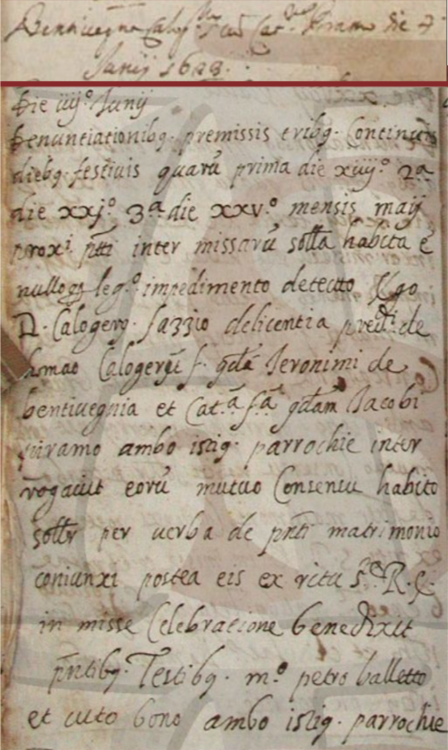 Bentivegna Calog.o cum Cat.na Juramo die 4
Junij 1623.
Die iiij.o Junij
Denuntiationibq. premissis tribq. Continuis
diebq. festiuis quarũ prima die xviij.o 2.a
die xxj.o 3.a die xxv.o mensis maij
prox.i pñti inter missarũ sollã habita ẽ
nulloq leg.o impedimento detecto Ego
D. Calogerq. fazzio delicentia pred.ti de
Calogerũ f. qdã Ieronimi de
bentiuegnia et Cat.a f.a qdam Iacobi
juramo ambo istiq. parrochie inter
rogauit eorũ mutuo Consensu habito
sollr per uerba de pñti matrimonio
coniunxi postea eis ex ritu s.te R. E.
in misse Celebratione benedixit
pñtibq. Testibq. m.o petro balletto
et uito bono ambo istiq. parrochie